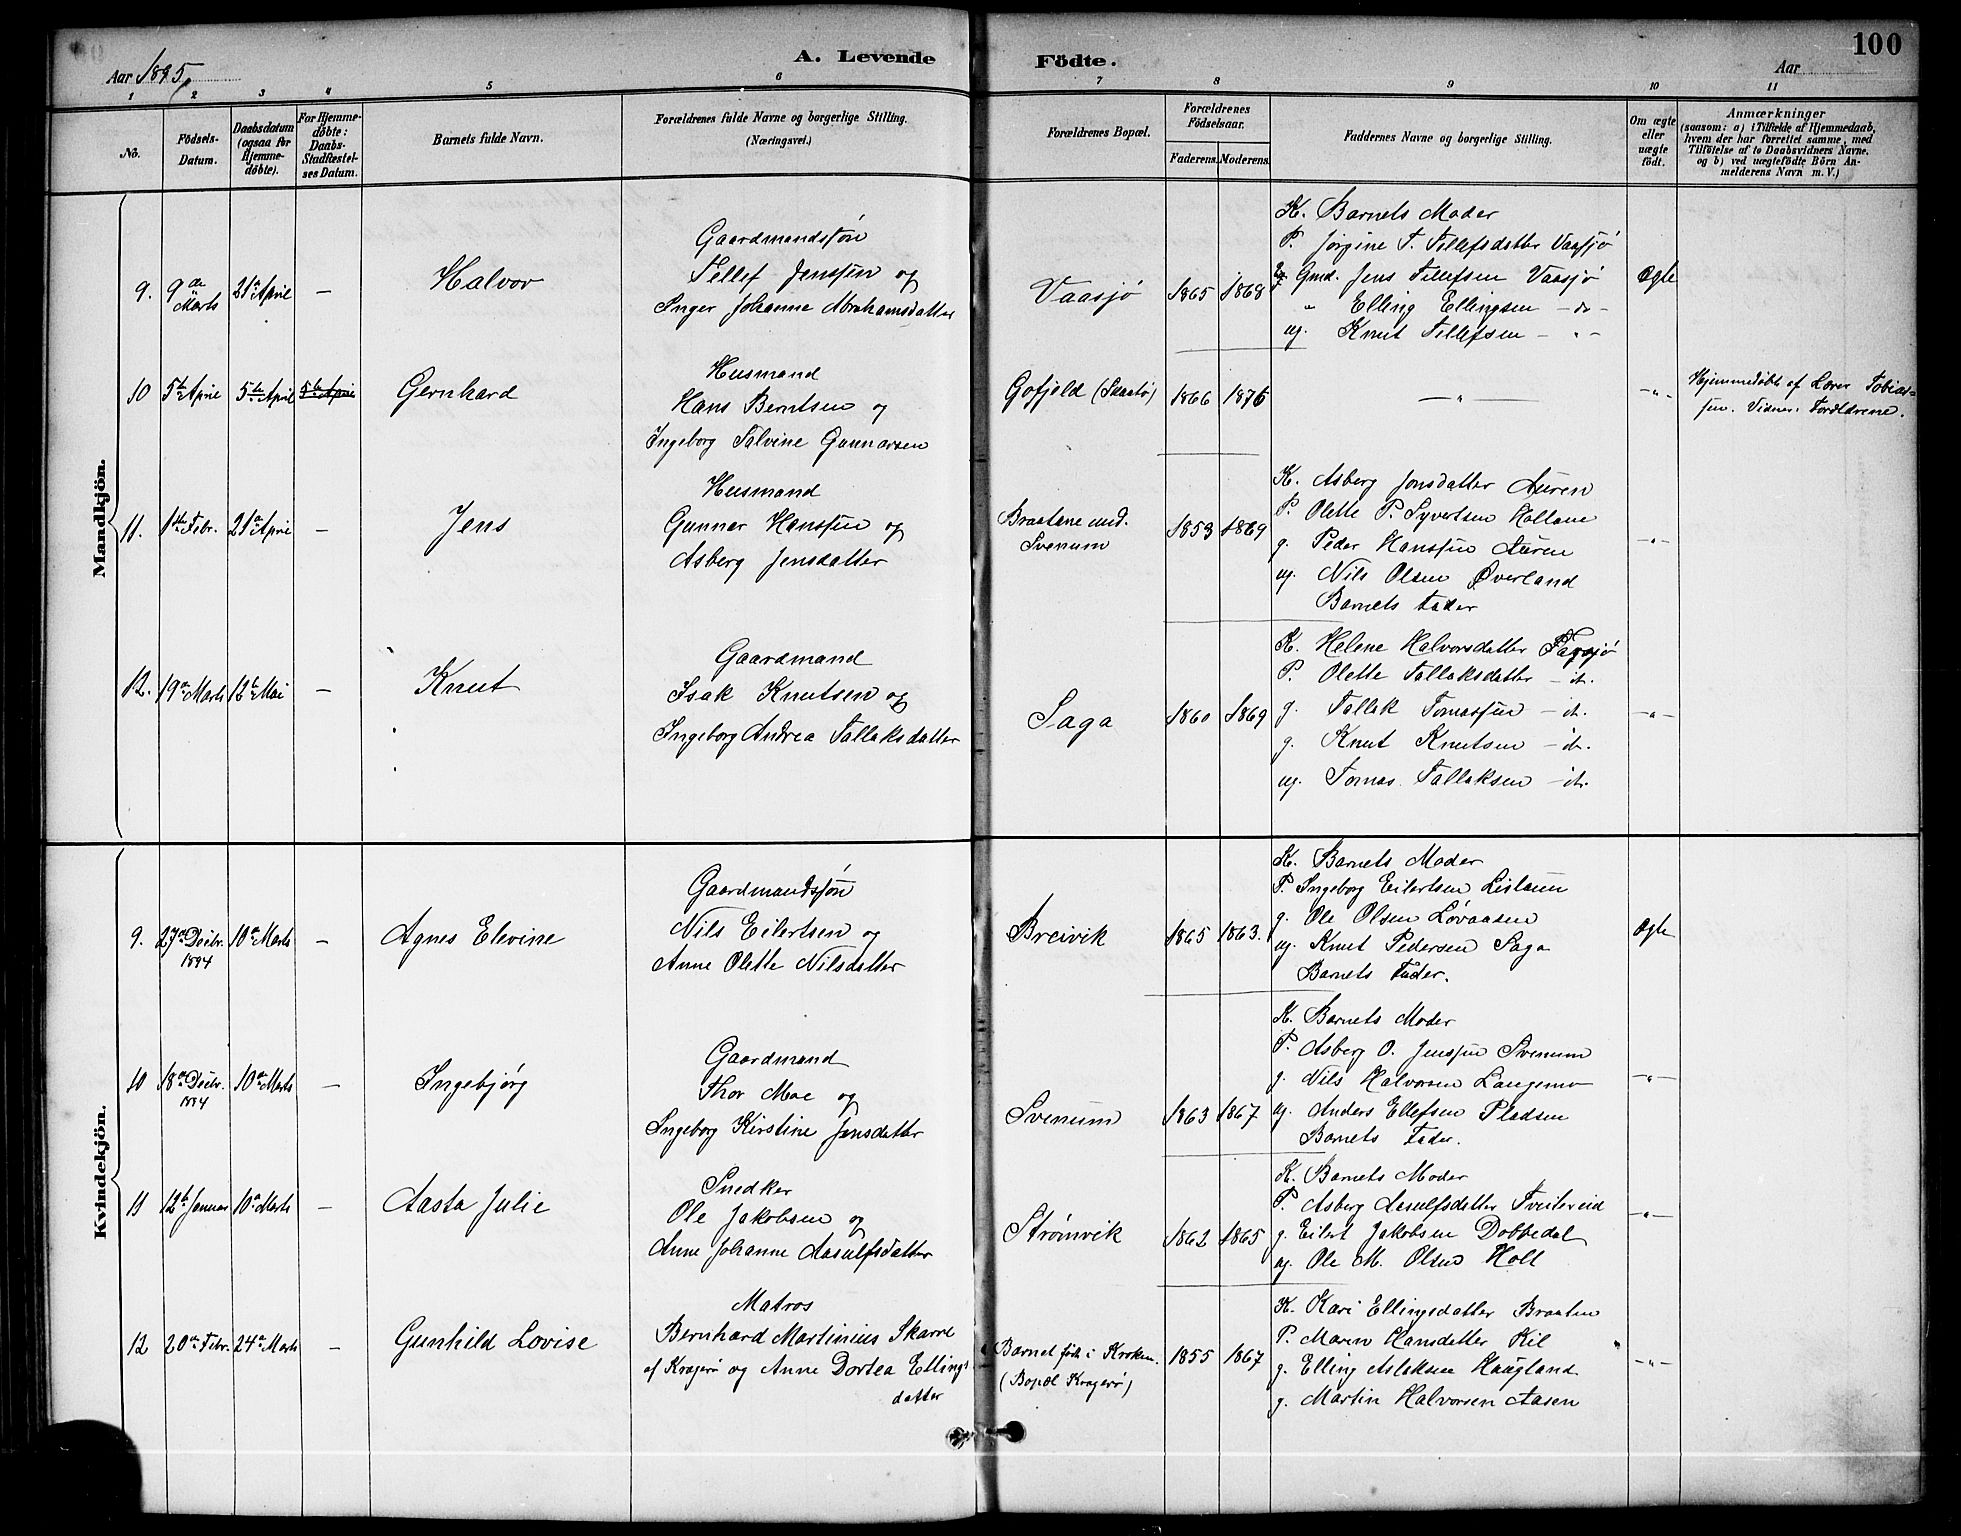 100
Aar 1895.
A. Levende Födte.
Aar
1 2 3 4 5 6 7 8 9 10 11
No.
Födsels-Datum.
Daabsdatum (ogsaa for Hjemmedøbte).
For Hjemmedøbte: Daabs-Stadfæstelses Datum.
Barnets fulde Navn.
Forældrenes fulde Navne og borgerlige Stilling. (Næringsvei.)
Forældrenes Bopæl.
Forældrenes Födselsaar.
Faderens. Moderens.
Faddernes Navne og borgerlige Stilling.
Om ægte eller uægte født.
Anmærkninger
(saasom: a) i Tilfælde af Hjemmedaab, hvem der har forrettet samme, med Tilföielse af to Daabsvidners Navne, og b) ved uægtefödte Börn Anmelderens Navn m. V.)
Mandkjön.
9. 9de Marts 21a April — Halvor
Gaardmandssøn
Tellef Jenssen og
Inger Johanne Abrahamsdatter
Vaasjø 1865 1868
K. Barnets Moder
P. Jørgine T. Tellefsdatter Vaasjø
g. Gmd. Jens Tellefsen Vaasjø
" Elling Ellingsen - do -
ug. Knut Tellefsen - " -
Ægte
10 5te April 5te April 5te April Gernhard
Husmand
Hans Berntsen og
Ingeborg Salvine Gunnarsen
Gofjeld (Skaatø) 1866 1876
— " —
- " -
Hjemmedøbt af Lærer Tobiassen. Vidner: Forældrene.
11. 1ste Febr. 21a April — Jens
Husmand
Gunnar Hanssen og
Asberg Jensdatter
Braatane und. Svenum 1853 1869
K. Asberg Jonsdatter Auren
P. Olette P. Syvertsen Hollane
g. Peder Hanssen Auren
ug. Nils Olsen Øverland
Barnets Fader
- " -
12. 19de Marts 12te Mai — Knut
Gaardmand
Isak Knutsen og
Ingeborg Andrea Tallaksdatter
Saga 1860 1869
K. Helene Halvorsdatter
P. Olette Tallaksdatter - it.
g. Tallak Tomassen - it.
g. Knut Knutsen - it.
ug. Tomas Tallaksen - it.
- " -
Kvindekjön.
9. 27de Decbr. 1894 10de Marts — Agnes Elevine
Gaardmandssøn
Nils Eilertsen og
Anne Olette Nilsdatter
Breivik 1865 1863.
K. Barnets Moder
P. Ingeborg Eilertsen Listaun
g. Ole Olsen Løvaasen
ug. Knut Pedersen Saga
Barnets Fader.
Ægte
10 18de Decbr. 1894 10de Marts — Ingebjørg
Gaardmand
Thor Moe og
Ingeborg Kirstine Jensdatter
Svenum 1863 1867
K. Barnets Moder
P. Asberg O. Jenssen Svenum
g. Nils Halvorsen Langemo
ug. Anders Ellefsen Pladsen
Barnets Fader.
- " -
11 12te Januar 10de Marts — Aasta Julie
Snedker
Ole Jakobsen og
Anne Johanne Aasulfsdatter
Strømvik 1862 1865
K. Barnets Moder
P. Asberg Aasulfsdatter Tveitereid
g. Eilert Jakobsen Dobbedal
ug. Ole M. Olsen Holt
- " -
12 20de Febr. 24de Marts — Gunhild Lovise
Matros
Bernhard Martinius Skarre
af Kragerø og Anne Dortea Ellings-
datter
Barnet født i Kroken.
(Bopæl Kragerø) 1855 1867
K. Kari Ellingsdatter Braaten
P. Maren Hansdatter Kil
g. Elling Aslaksen Haugland
g. Martin Halvorsen Aasen
- " -